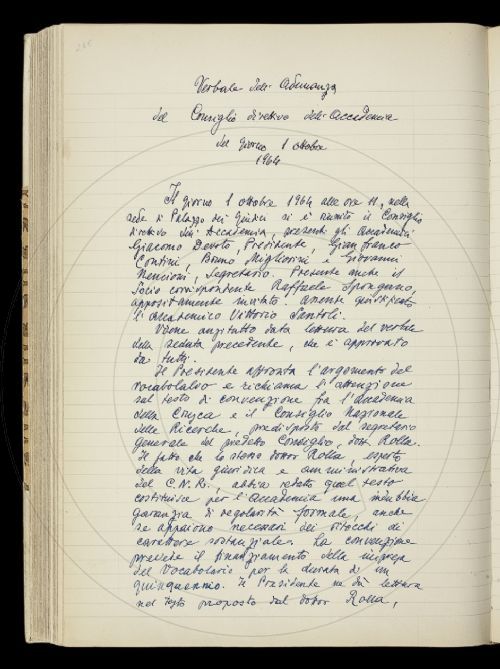 Verbale dell'Adunanza
del Consiglio direttivo dell'Accademia
del giorno 1 ottobre
1964
Il giorno 1 ottobre 1964 alle ore 11, nella
sede di Palazzo dei Giudici si è riunito il Consiglio
direttivo dell'Accademia, presenti gli Accademici
Giacomo Devoto, Presidente, Gianfranco
Contini, Bruno Migliorini e Giovanni
Nencioni, Segretario. Presente anche il
Socio corrispondente Raffaele Spongano,
appositamente invitato. Assente giustificato
l'Accademico Vittorio Santoli.
Viene anzitutto data lettura del verbale
della seduta precedente, che è approvato
da tutti.
Il Presidente affronta l'argomento del
vocabolario e richiama l'attenzione
sul testo di convenzione fra l'Accademia
della Crusca e il Consiglio Nazionale
delle Ricerche, predisposto dal segretario
generale del predetto Consiglio, dott. Rolla.
Il fatto che lo stesso dottor Rolla, esperto
della vita giuridica e amministrativa
del C.N.R., abbia redatto quel testo
costituisce per l'Accademia una indubbia
garanzia di regolarità formale, anche
se appaiono necessari dei ritocchi di
carattere sostanziale. La convenzione
prevede il finanziamento della impresa
del Vocabolario per la durata di un
quinquennio. Il Presidente ne dà lettura
nel testo proposto dal dottor Rolla,